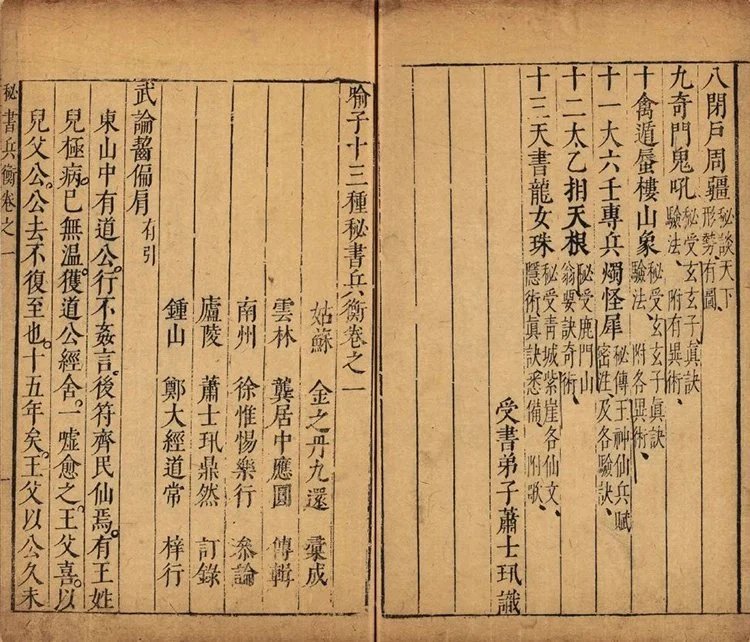 八閉戸周疆 秘談天下
形勢有圖
九奇門鬼吼 秘受玄玄子眞訣
驗法、附有異術、
十禽遁蜃樓山象 秘受玄玄子眞訣
驗法、附各異術、
十一大六壬專兵燭怪犀 秘傳王神仙兵賦
密泄、及各驗訣、
十二太乙相天根 秘受鹿門山
翁嬰訣奇術、
十三天書龍女珠 秘受青城紫崖各仙文、
隱術眞訣悉備、附歌、
受書弟子蕭士珫識
喻子十三種秘書兵衡卷之一
姑蘇 金之丹九還 彙成
雲林 龔居中應圓 傳輯
南州 徐惟惕樂行 叅論
廬陵 蕭士珫鼎然 訂錄
鍾山 鄭大經道常 梓行
武論齧偏肩 有引
東山中有道公。行不姦言。後符齊民仙焉。有王姓
兒極病。已無温。獲道公經舍。一噓愈之。王父喜。以
兒父公。公去不復至也。十五年矣。王父以公久未
秘書兵衡卷之一